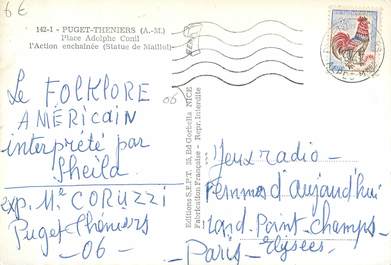 6€
142-1 - PUGET-THENIERS (A.-M.)
Place Adolphe Conil
l'Action enchaînée (Statue de Maillol)
Le FOLKLORE
AMÉRICAIN
interprété par
Sheila.
exp. Me CORUZZI
Puget-Théniers
- 06 -
06
Editions S.E.P.T. 35, Ed Gorbella NICE
Fabrication Française - Repr. Interdite
Jeux radio -
Femmes d'aujourd'hui
rond-Point-Champs-
Elysées -
- Paris -